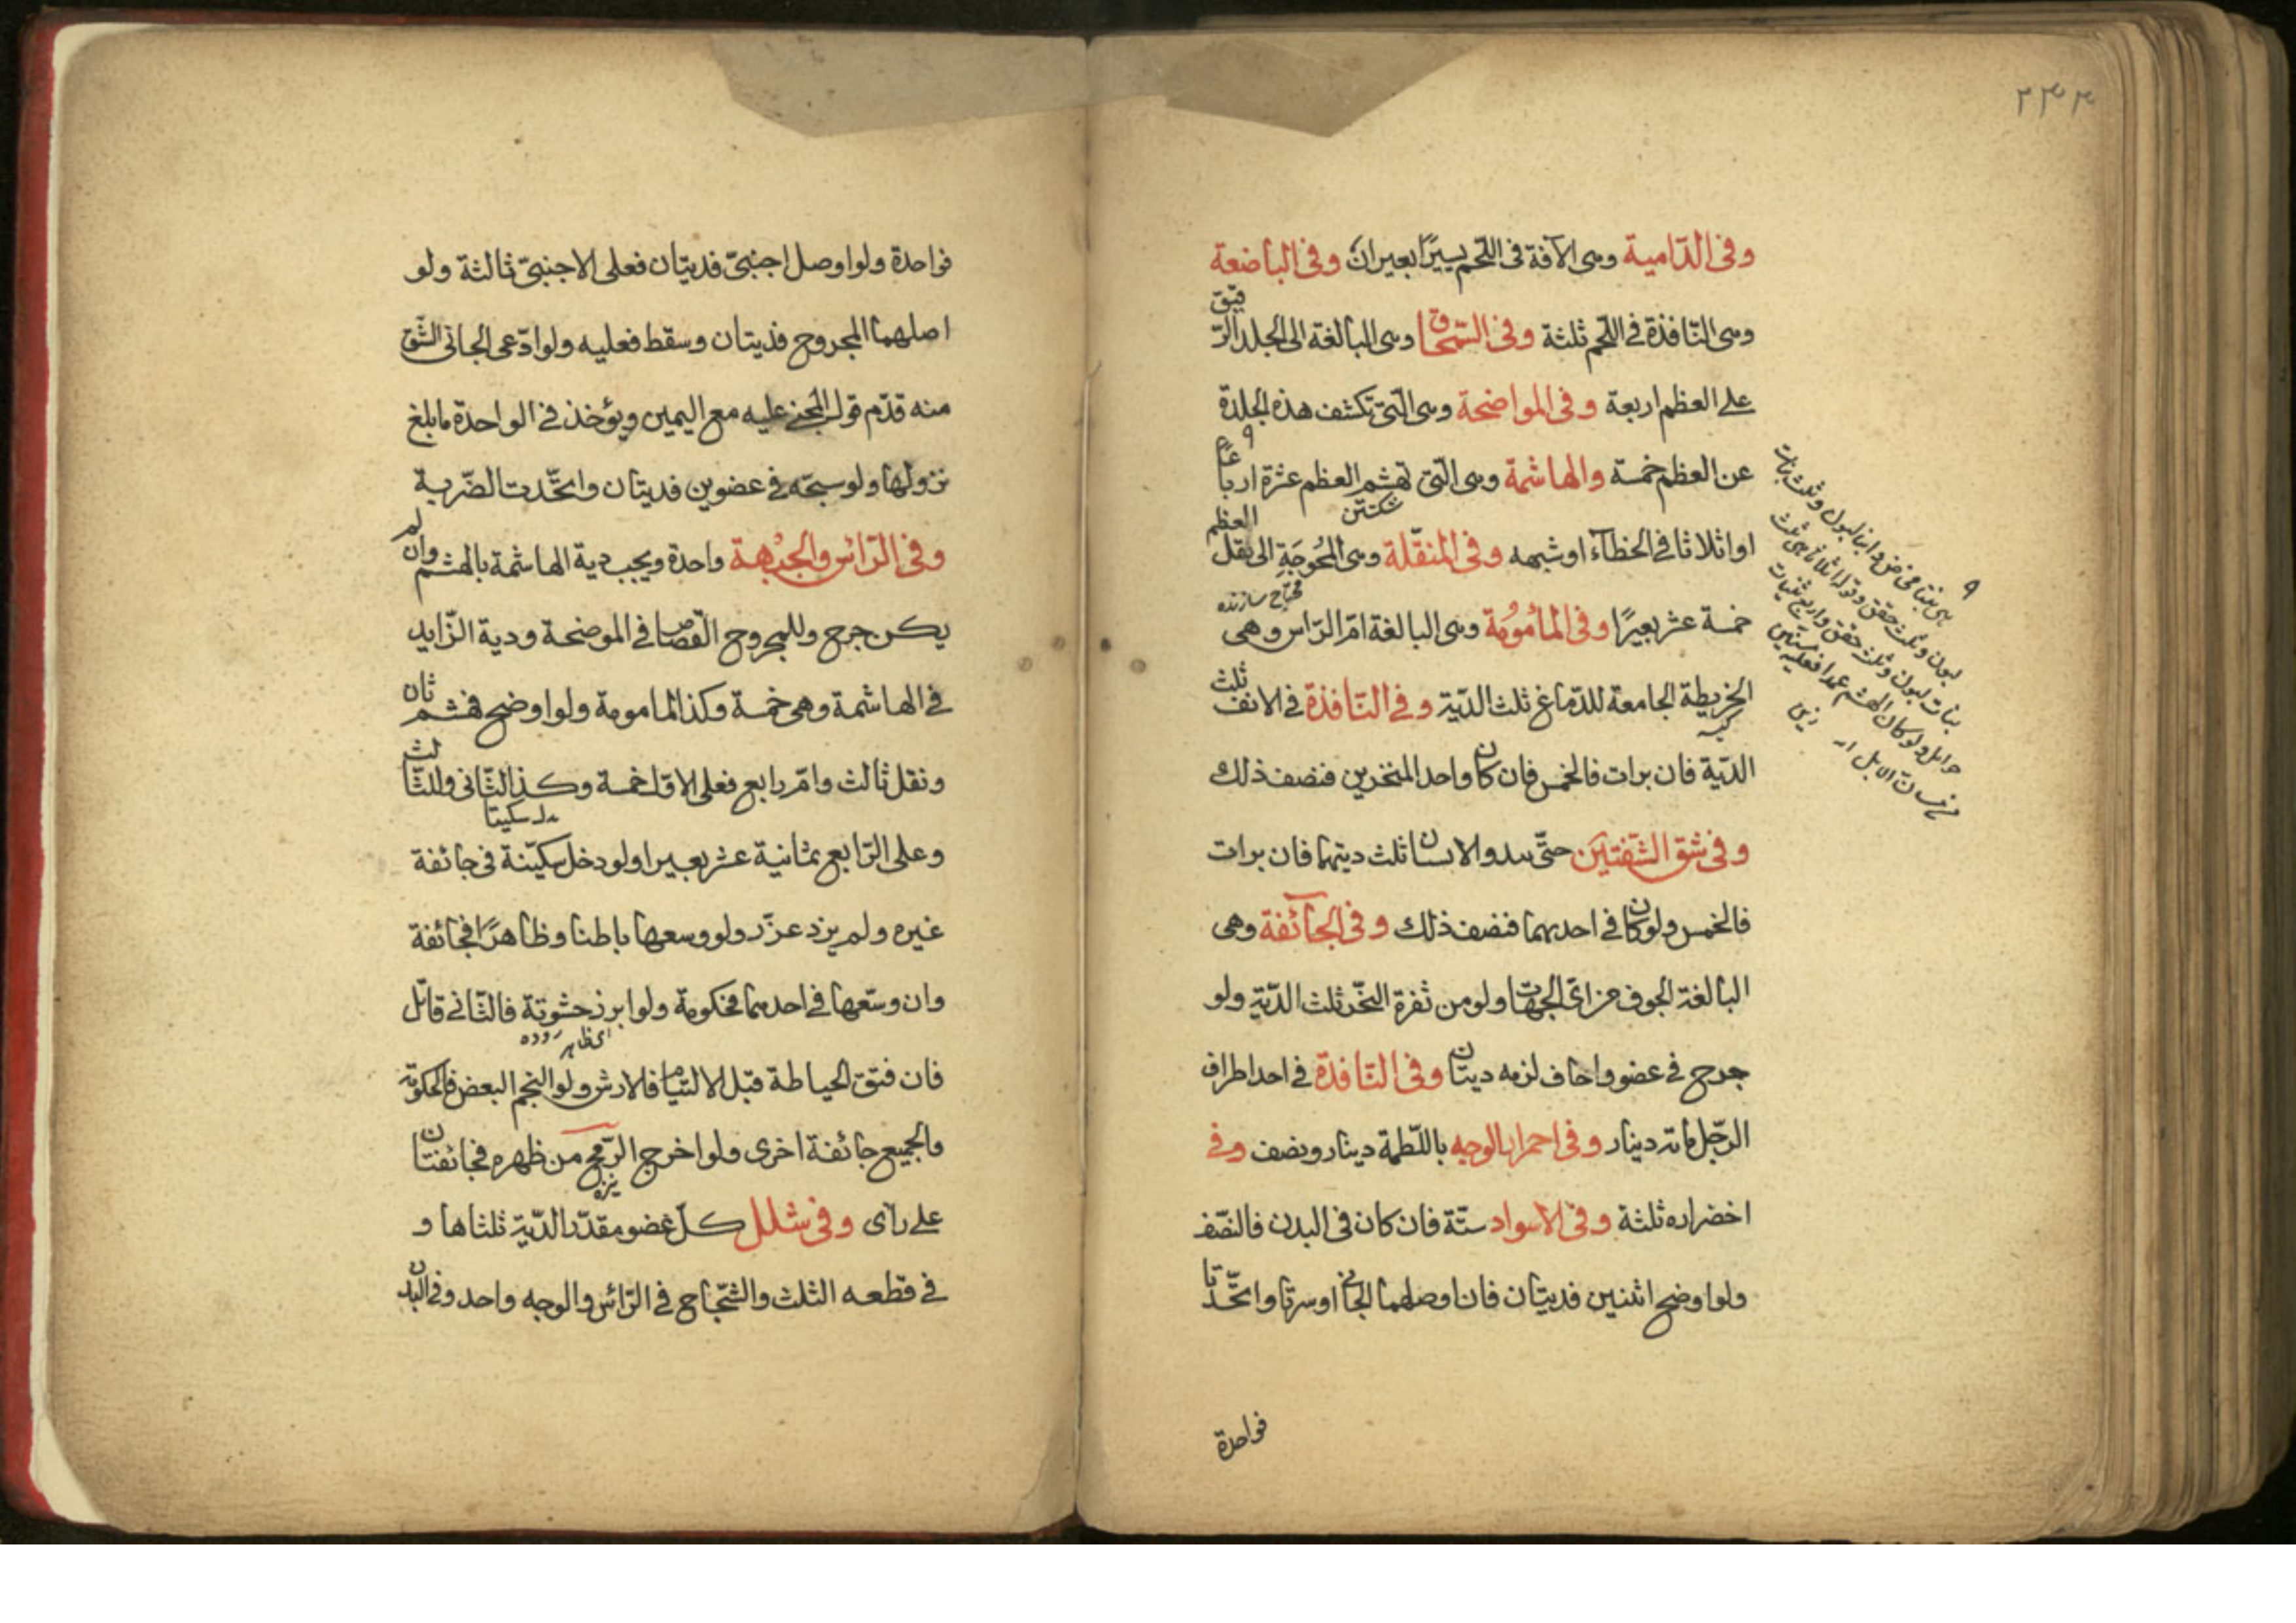 ٢٣٣
وفی الدّامية وهی الآفة فی اللّحم يسيرًا بعيران وفی الباضعة
وهی النّافذة فی اللّحم ثلثة وفی السّمحاق وهی البالغة الی الجلد الرّقيق
علی العظم اربعة وفی المواضحة وهی الّتی تكشف هذه الجلدة
عن العظم خمسة والهاشمة وهی الّتی تهشم العظم عشرة ارباعًا
شكستن
او اثلاثا فی الخطآء او شبهه وفی المنقّلة وهی المحُوجَةِ الی نقل العظم
محتاج سازنده
خمسة عشر بعيرًا وفی المأمُومُة وهی البالغة امّ الرّاس وهی
الخريطة الجامعة للدّماغ ثلث الدّية وفی النّافذة فی الانف ثلث
كيسه
الدّية فان برات فالخمس فان كان واحد المنخرين فنصف ذلك
وفی شق الشّفتين حتّی سدو الاسنان ثلث ديتهما فان برات
فالخمس ولو كان فی احديهما فنصف ذلك وفی الجآئفة وهی
البالغة الجوف من ایّ الجهات ولو من ثغرة النّحر ثلث الدّية ولو
جرح فی عضو واجاف لزمه ديتان وفی النّافذة فی احد اطراف
الرّجل مائة دينار وفی احمرار الوجه باللّطمة دينار ونصف وفی
اخضراره ثلثة وفی الاسواد ستّة فان كان فی البدن فالنّصف
ولو اوضح اثنين فديتان فان اوصلهما الجانی او سرتا واتّحدتا
فواحدة
لبون وثلث حقق
بنات لبون وثلث حقق واربع ثنيات
حوامل ولو كان الهشم عمدا فعليه
من الابل
فواحدة ولو اوصل اجنبیّ فديتان فعلی الاجنبیّ ثالثة ولو
اصلهما المجروح فديتان وسقط فعليه ولو ادّعی الجانی الشّق
منه قدّم قول المجنی عليه مع اليمين ويؤخذ فی الواحدة ما بلغ
نزولها ولو سبحّه فی عضوين فديتان واتّحدت الضّربة
وفی الرّائس والجبْهة واحدة ويجب دية الهاشمة بالهشم وان لم
يكن جرح وللمجروح القصاص فی الموضحة ودية الزّايد
فی الهاشمة وهی خمسة وكذا المامومة ولو اوضح فهشم ثان
ونقل ثالث وامّ رابع فعلی الاوّل خمسة وكذا الثّانی وللثّالث
وعلی الرّابع ثمانية عشر بعيرا ولو دخل سكيّنة فی جائفة
غيره ولم يزد عزّر ولو وسعها باطنا وظاهرًا فجائفة
وان وسّعها فی احدهما فحكومة ولو ابرز حشوتة فالثّانی قاتل
ای ظاهر روده
فان فتق الخياطة قبل الالتيام فالارش ولو التحم البعض فالحكومة
والجميع جائفة اخری ولو اخرج الرّمح من ظهره فجائفتان
نيزه
علی رآی وفی شلل كلّ عضو مقدّر الدّية ثلثاها و
فی قطعه الثلث والشّجاج فی الرّائس والوجه واحد وفی البدن